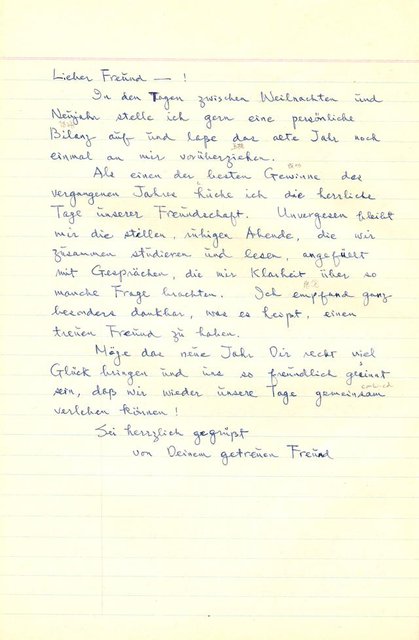 Lieber Freund — !
In den Tagen zwischen Weihnachten und
Neujahr stelle ich gern eine persönliche
Bilanz auf und lape das alte Jahr noch
einmal an mir vorüberziehen.
Als einen der besten Gewinne des
vergangenen Jahres buche ich die herrliche
Tage unserer Freundschaft. Unvergesen bleibt
mir die stellen, ruhigen Abende, die wir
zusammen studieren und lesen, angefüllt
mit Gesprächen, die mir Klarheit über so
manche Frage brachten. Ich empfand ganz
besonders dankbar, was es heipt, einen
treuen Freund zu haben.
Möge das neue Jahr Dir recht viel
Glück bringen und uns so freundlich geeinnt
sein, daß wir wieder unsere Tage gemeinsam
verleben können!
Sei herzlich gegrüßt
von Deinem getreuen Freund